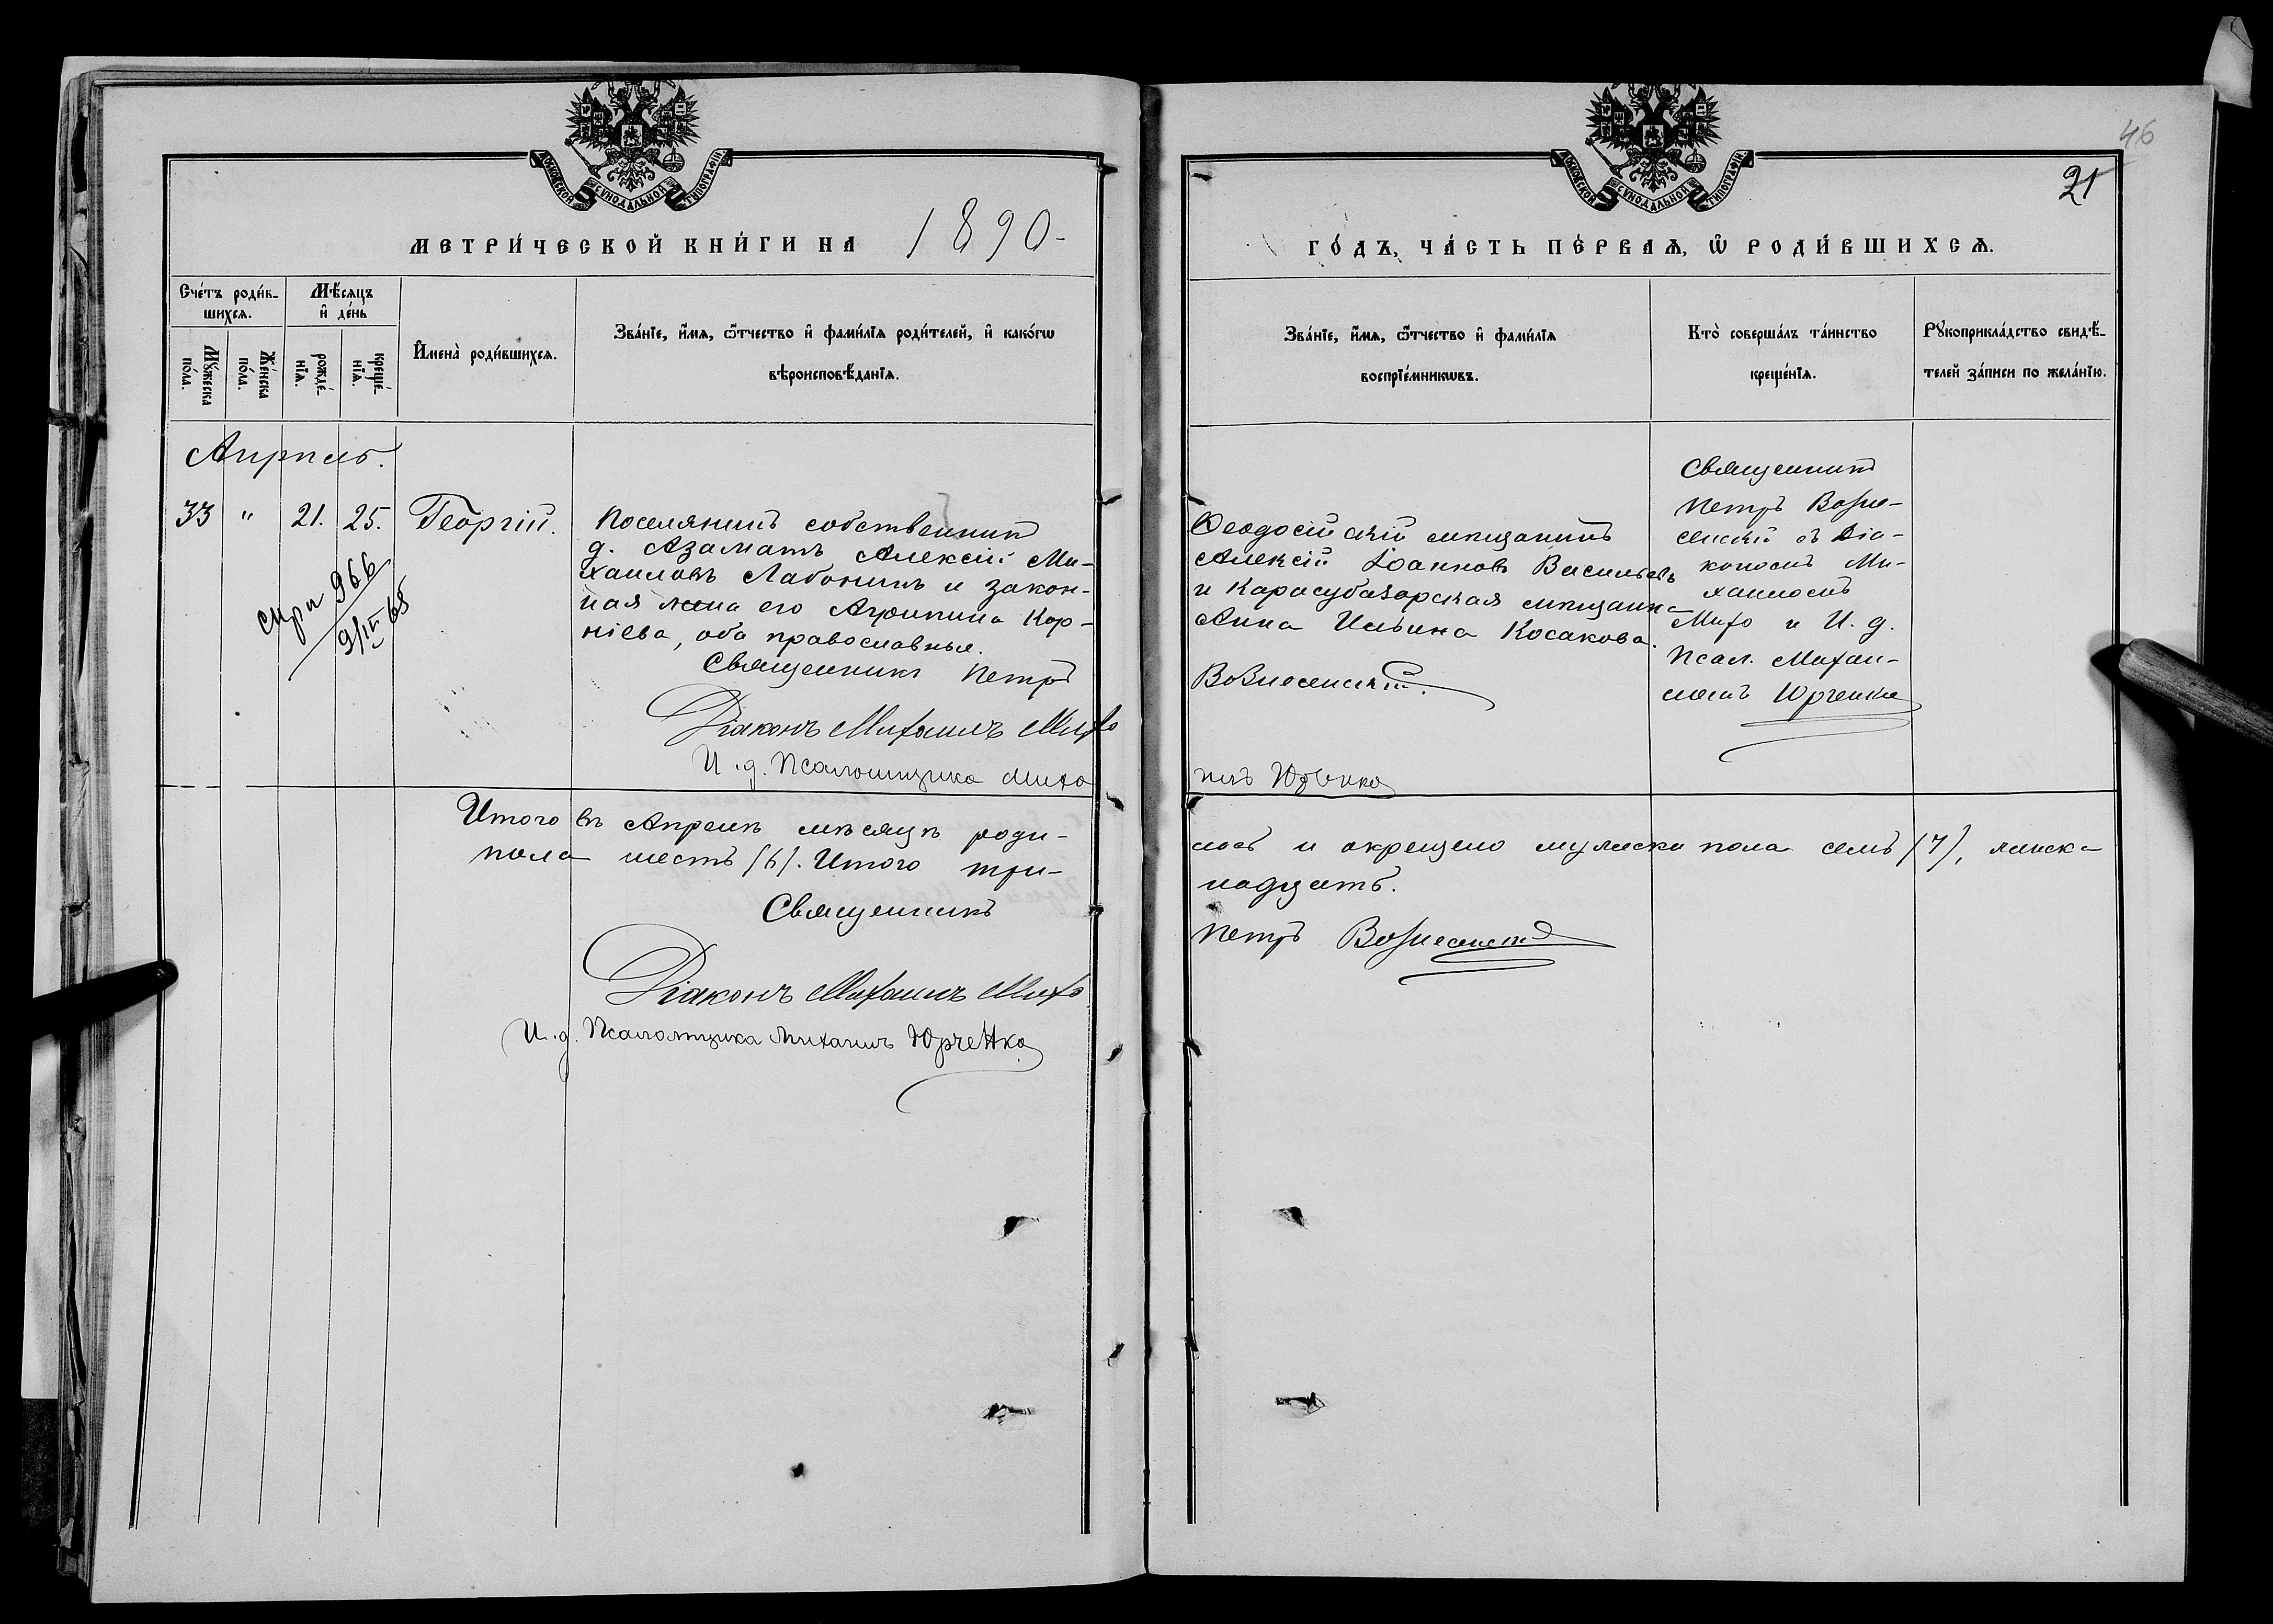 46
21
МОСКОВСКОЙ СУНОДАЛЬНОЙ ТИПОГРАФІИ
МОСКОВСКОЙ СУНОДАЛЬНОЙ ТИПОГРАФІИ
МЕТРИ́ЧЕСКОЙ КНИ́ГИ НА 1890-
ГО́ДЪ, ЧА́СТЬ ПЕ́РВАЯ, Ѡ РОДИ́ВШИХСЯ.
Сче́тъ роди́в-
шихся.
Мꙋ́жеска
по́ла.
Же́нска
по́ла.
Мѣ́сяцъ
и҆ де́нь
рожде́-
нїя.
креще́-
нїя.
И҆мена̀ роди́вшихся.
Зва́нїе, и҆́мя, ѻ҆́тчество и҆ фами́лїя роди́телей, и҆ како́гѡ
вѣроисповѣ́данїя.
Зва́нїе, и҆́мя, ѻ҆́тчество и҆ фами́лїя
воспрїе́мникѡвъ.
Кто̀ соверша́лъ та́инство
креще́нїя.
Рꙋкоприкла́дство свидѣ́-
телей за́писи по жела́нїю.
Апрѣль.
33 " 21. 25. Георгій.
966
9/IV 65
Поселянинъ собственникъ
д. Азаматъ Алексій Ми-
хаиловъ Лабонинъ и закон-
ная жена его Агрипина Кор-
ніева, оба православные.
Священникъ Петръ
Діаконъ Михаилъ Михо
И. д. Псаломщика Миха
Ѳеодосійскій мѣщанинъ
Алексій Іоанновъ Васильевъ
и Карасубазарская мѣщанка
Анна Ильина Косакова.
Вознесенскій.
илъ Юрченко
Священникъ
Петръ Возне-
сенскій съ Діа-
кономъ Ми-
хаиломъ
Михо и И. д.
Псал. Михаи-
ломъ Юрченко
Итого въ Апрелѣ мѣсяцѣ роди-
лось и окрещено мужска пола семь /7/, женска
пола шесть /6/. Итого три-
надцать.
Священникъ
Петръ Вознесенскій
Діаконъ Михаилъ Михо
И. д. Псаломщика Михаилъ Юрченко